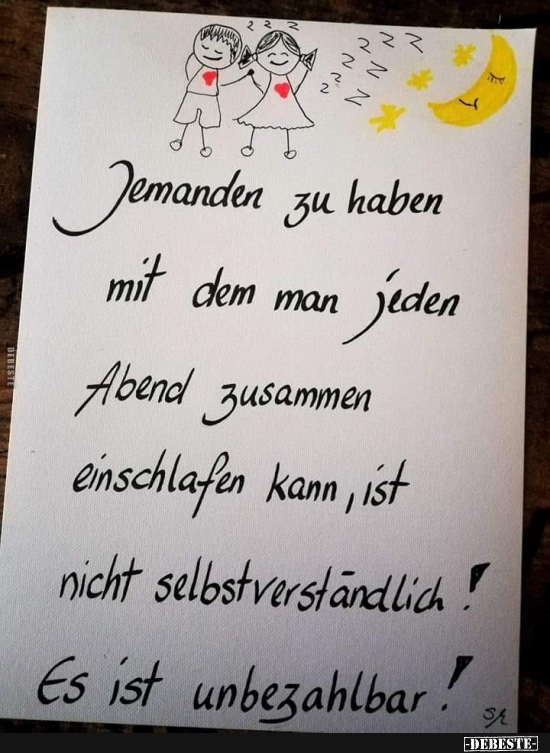 z z z
z z z
z z
z z z
Jemanden zu haben
mit dem man jeden
Abend zusammen
einschlafen kann, ist
nicht selbstverständlich!
Es ist unbezahlbar!
DEBESTE
-DEBESTE-